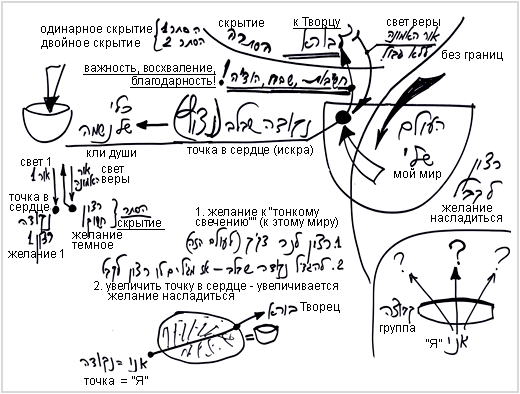 одинарное скрытие
הסתר 1
двойное скрытие
הסתר 2
скрытие
הסתרה
к Творцу
לבורא
свет веры
אור האמונה
ללא גבול
без границ
важность, восхваление,
благодарность!
חשיבות, שבח, הודיה!
כלי
של נשמה
кли души
נקודה שבלב (ניצוץ)
точка в сердце (искра)
העולם
שלי
мой мир
רצון
לקבל
желание
насладиться
свет 1
אור 1
אור
האמונה
свет
веры
точка в
сердце
נקודה
רצון 1
желание 1
רצון
желание
темное
הסתר
скрытие
1. желание к "тонкому
свечению"" (к этому миру)
1. רצון לנר דקיק (לעולם הזה)
2. להגדיל נקודה שבלב – אז מגדילים לו רצון לקבל
2. увеличить точку в сердце - увеличивается
желание насладиться
בורא
Творец
אני = נקודה
точка = "Я"
? ? ?
קבוצה
группа
"Я" אני